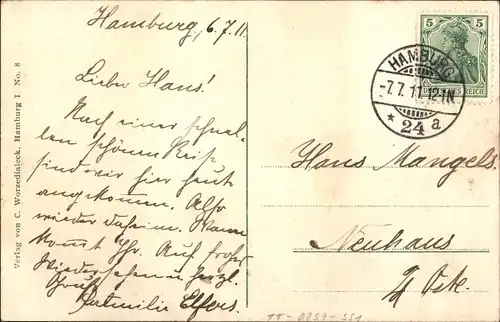 Hamburg, 6.7.11.
Lieber Hans!
Nach einer schnel-
len schönen Reise
sind wir hier heute
angekommen. Also
wieder daheim. Wann
kommt Ihr. Auf frohes
Wiedersehen u. herzl.
Gruß
Fatmilie Elfers.
Verlag von C. Worzedialeck, Hamburg I No. 8
5 5
DEUTSCHES REICH
HAMBURG
-7.7.11.12-1N
* 24 a
Hans Mangels.
Neuhaus
a/ Oste.
TT-0259-551